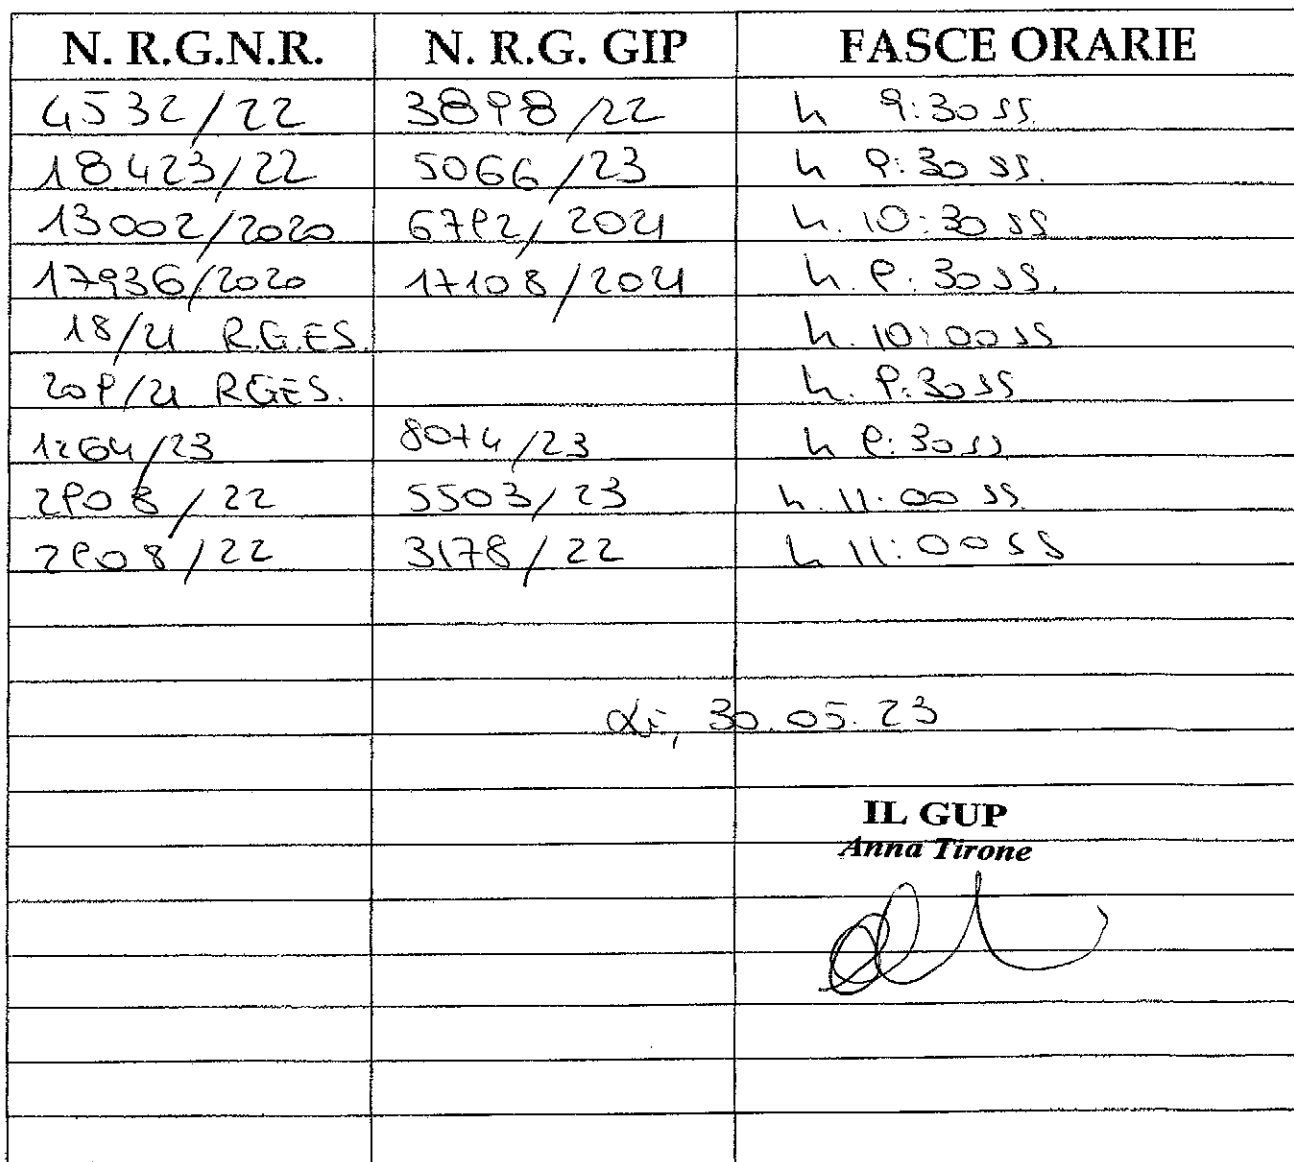 N. R.G.N.R. N. R.G. GIP FASCE ORARIE
4532/22 3898/22 h 9:30 ss.
18423/22 5066/23 h 9:30 ss.
13002/2020 6792/2021 h. 10:30 ss
17936/2020 17108/2021 h. 9:30 ss.
18/21 R.G.ES. h. 10:00 ss
209/21 RGES. h. 9:30 ss
1264/23 8074/23 h 9:30 ss
2908/22 5503/23 h. 11:00 ss.
2908/22 3178/22 h 11:00 ss
Lì, 30.05.23
IL GUP
Anna Tirone